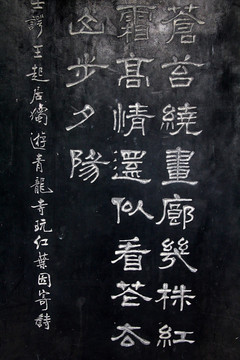 蒼苔繞畫廊幾株紅
霜高情還似看芲去
出步夕陽
士諤王起居獨遊青龍寺玩红葉因寄詩